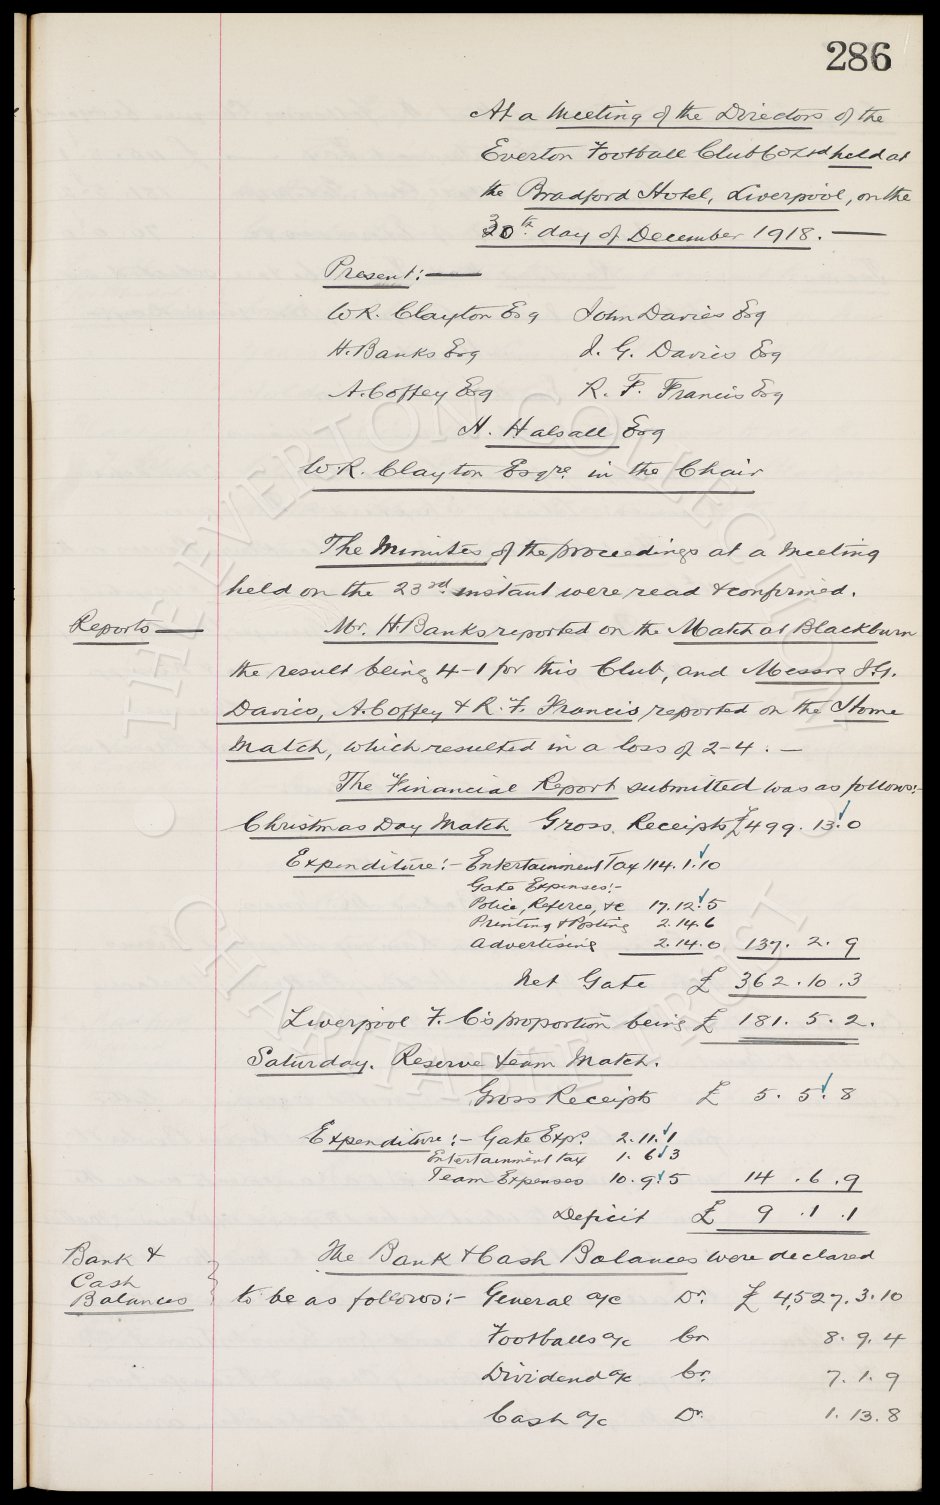 286
At a Meeting of the Directors of the
Everton Football Club Co Ltd held at
the Bradford Hotel, Liverpool, on the
30th day of December 1918. —
Present: —
W.R. Clayton Esq John Davies Esq
H. Banks Esq J. G. Davies Esq
A. Coffey Esq R. F. Francis Esq
H. Halsall Esq
W.R. Clayton Esqre. in the Chair
The Minutes of the proceedings at a Meeting
held on the 23rd. instant were read & confirmed.
Reports — Mr. H. Banks reported on the Match at Blackburn
the result being 4-1 for this Club, and Messrs J.G.
Davies, A. Coffey & R. F. Francis reported on the Home
Match, which resulted in a loss of 2-4. —
The Financial Report submitted was as follows:-
Christmas Day Match Gross Receipts £499. 13. 0
Expenditure:- Entertainment Tax 114. 1. 10
Gate Expenses:-
Police, Referee, &c 17. 12. 5
Printing & Posting 2. 14. 6
Advertising 2. 14. 0 137. 2. 9
Net Gate £ 362. 10. 3
Liverpool F. C's proportion being £ 181. 5. 2.
Saturday. Reserve team Match.
Gross Receipts £ 5. 5. 8
Expenditure:- Gate Exps. 2. 11. 1
Entertainment tax 1. 6. 3
Team Expenses 10. 9. 5 14. 6. 9
Deficit £ 9. 1. 1
Bank & Cash Balances The Bank & Cash Balances were declared
to be as follows:- General a/c Dr. £ 4,527. 3. 10
Footballs a/c Cr 8. 9. 4
Dividend a/c Cr. 7. 1. 9
Cash a/c Dr. 1. 13. 8
• THE EVERTON COLLECTION •
CHARITABLE TRUST